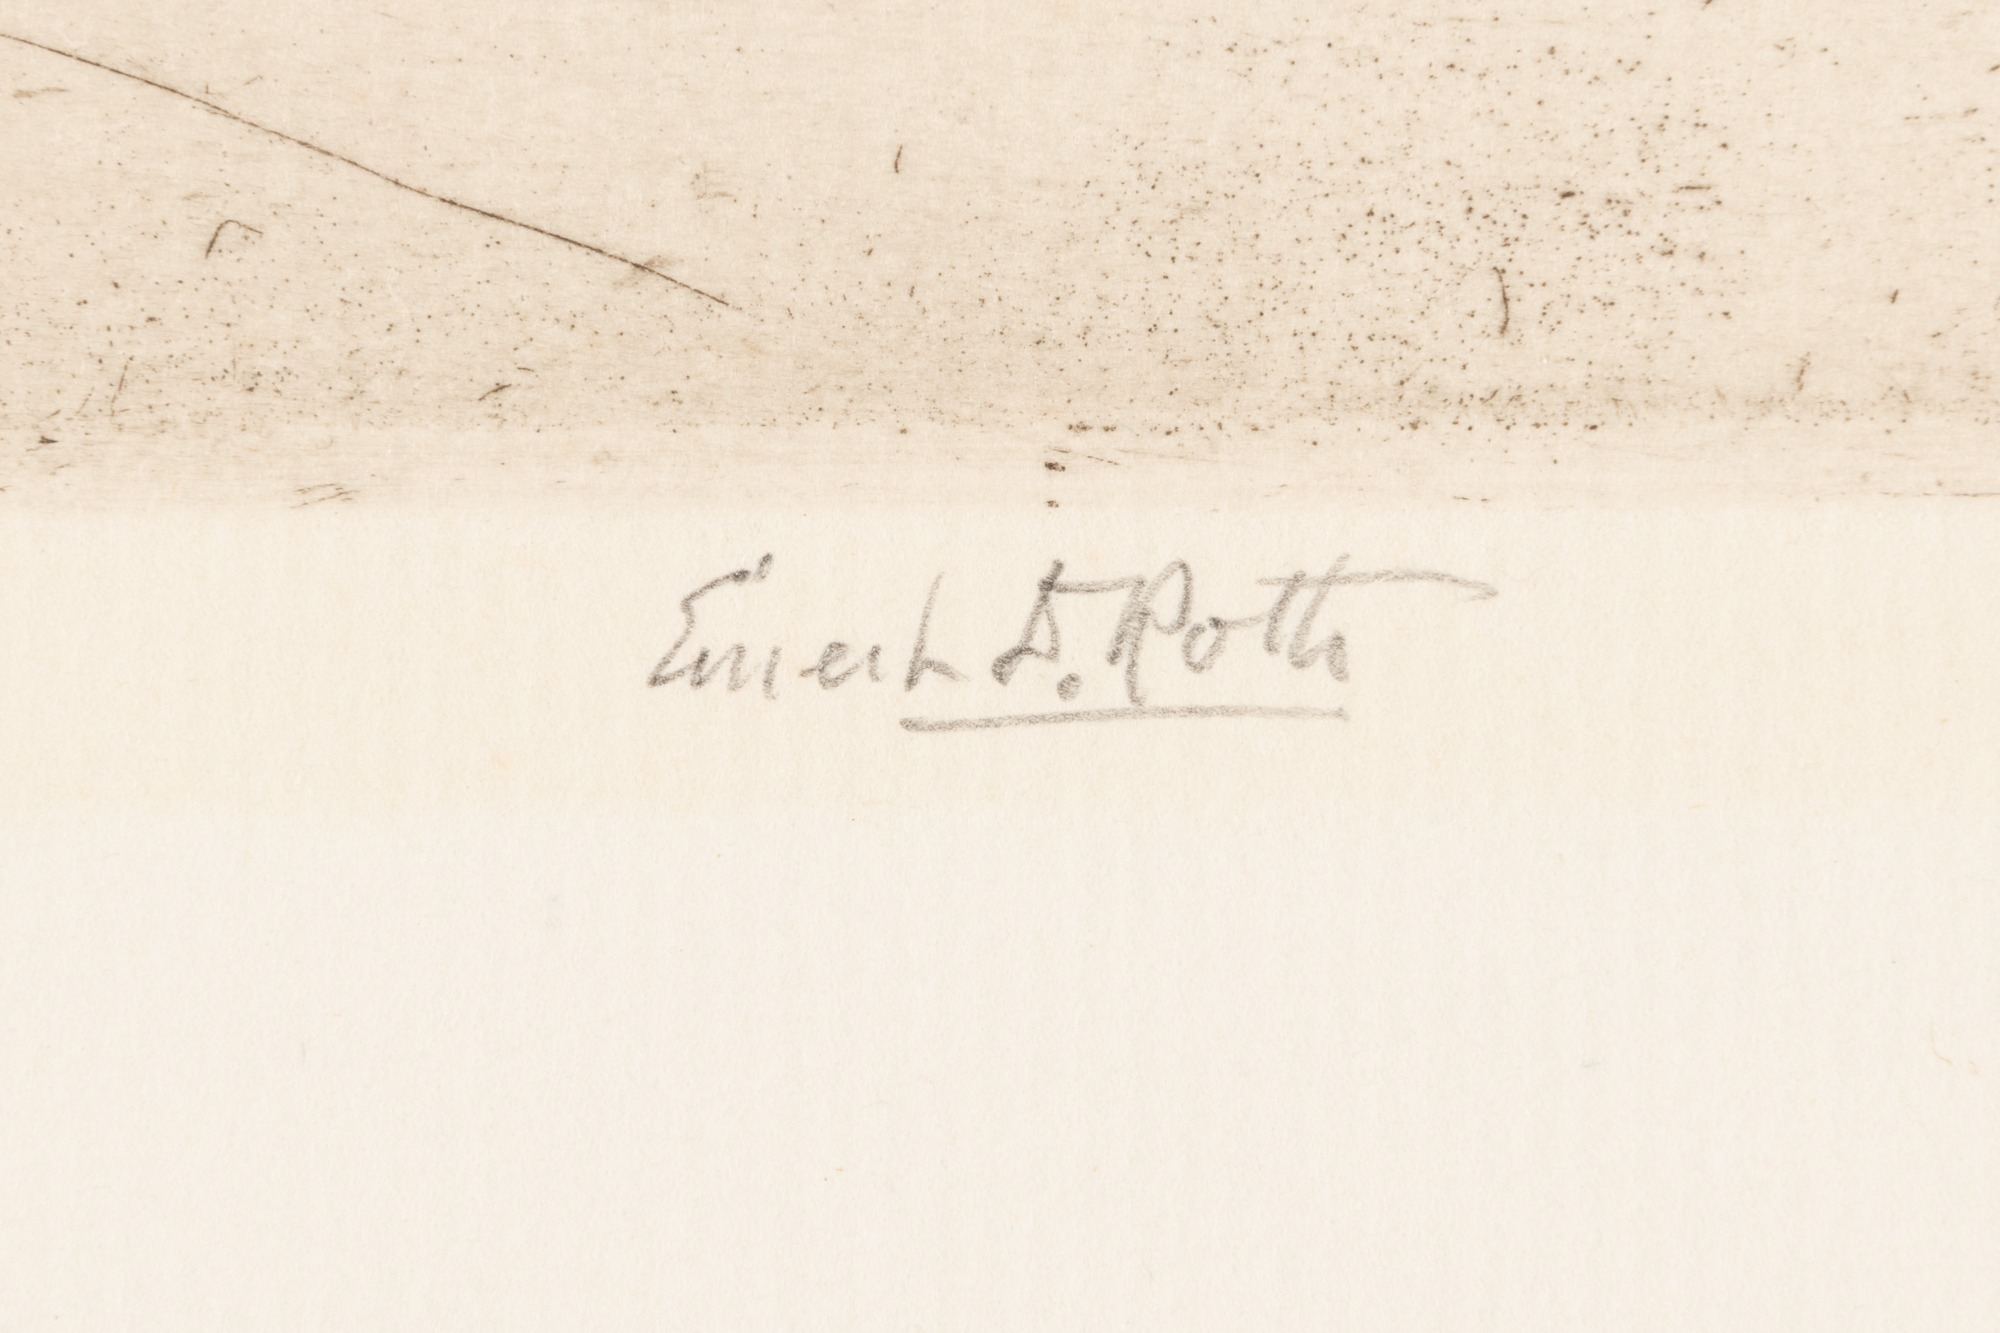 Ernest D. Roth